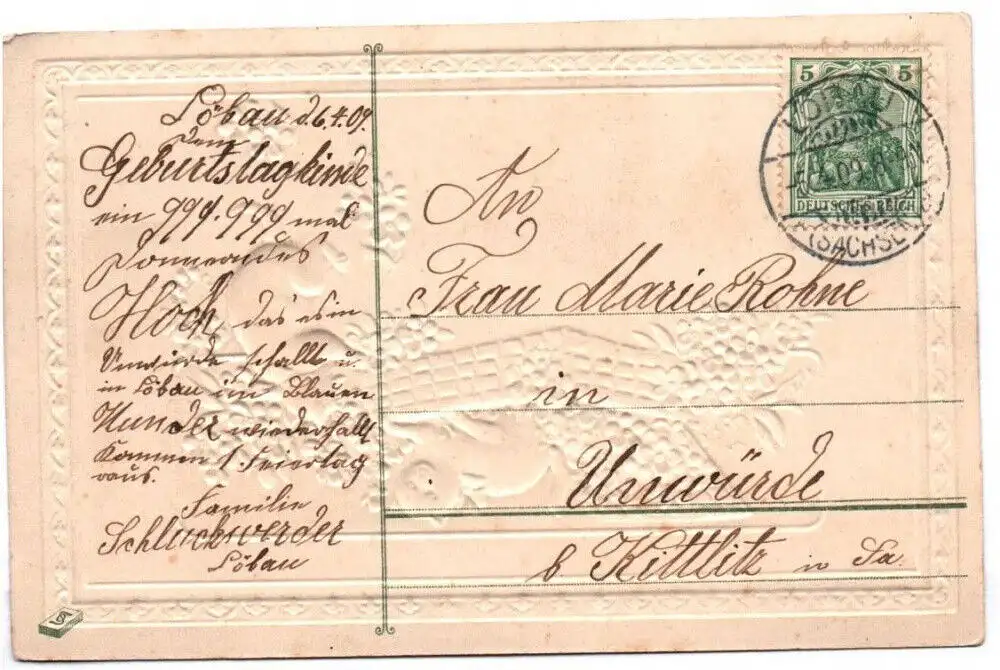 Löbau d. 6.4.09.
Dem
Geburtstagkinde
ein 999.999 mal
Donnerndes
Hoch, das es in
Unwürde schallt u.
in Löbau im Blauen
Wunder wiederhallt
Kommen 1 Feiertag
raus.
Familie
Schluckwerder
Löbau
An
Frau Marie Rohne
in
Unwürde
b. Kittlitz in Sa.
5 5
DEUTSCHES REICH
LÖBAU
(SACHSEN)